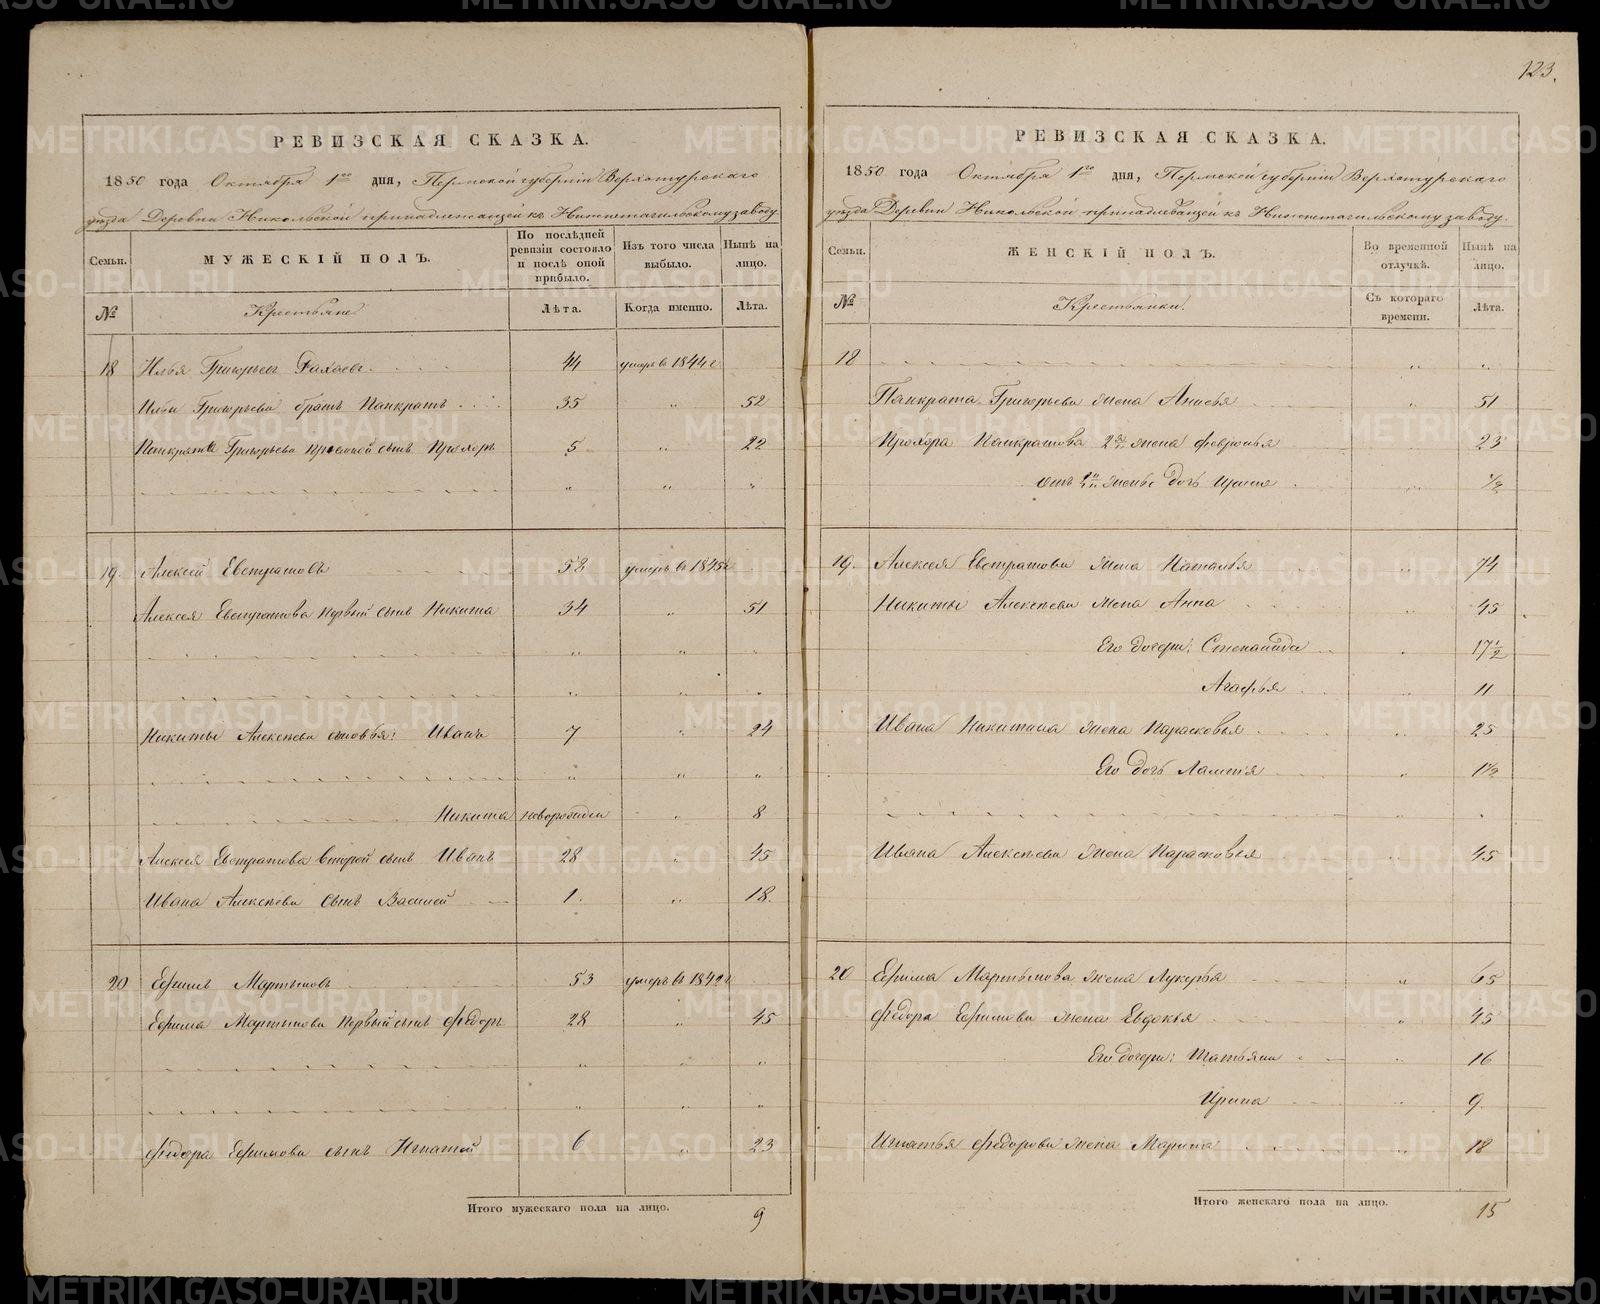 123.
РЕВИЗСКАЯ СКАЗКА.
1850 года Октября 1го дня, Пермской губернiи Верхотурскаго
уезда Деревни Никольской принадлежащей къ Нижнетагильскому заводу.
Семьи.
МУЖЕСКIЙ ПОЛЪ.
По послѣдней ревизiи состояло и послѣ оной прибыло.
Изъ того числа выбыло.
Нынѣ на лицо.
№
Крестьяне
Лѣта.
Когда именно.
Лѣта.
18 Илья Григорьевъ 44 умеръ въ 1844 г
Ильи Григорьева братъ Панкратъ 35 " 52
Панкрата Григорьева прiемной сынъ Прохоръ 5 " 22
19. Алексей Евстратовъ 58 умеръ въ 1845 г
Алексея Евстратова первый сынъ Никита 34 " 51
Никиты Алексѣева сыновья: Иванъ 7 " 24
Никита новорожден 8
Алексея Евстратова второй сынъ Иванъ 28 " 45
Ивана Алексѣева сынъ Василей 1. " 18.
20 Ефимъ Мартыновъ 53 умеръ въ 1842 г
Ефима Мартынова первый сынъ Федоръ 28 " 45
Федора Ефимова сынъ Игнатей 6 " 23
Итого мужескаго пола на лицо. 9
РЕВИЗСКАЯ СКАЗКА.
1850 года Октября 1го дня, Пермской губернiи Верхотурскаго
уезда Деревни Никольской принадлежащей къ Нижнетагильскому заводу.
Семьи.
ЖЕНСКIЙ ПОЛЪ.
Во временной отлучкѣ.
Нынѣ на лицо.
№
Крестьянки.
Съ котораго времени.
Лѣта.
18
Панкрата Григорьева жена Анисья " 51
Прохора Панкратова 2я жена Февронья 23
жены дочь Ирина 1/2
19. Алексея Евстратова жена Наталья " 74
Никиты Алексѣева жена Анна " 45
Его дочери: Степанида 17 1/2
Агафья 11
Ивана Никитина жена Парасковья 25
Его дочь 1 1/2
Ивана Алексѣева жена Парасковья 45
20 Ефима Мартынова жена Лукерья " 65
Федора Ефимова жена Евдокья " 45
Его дочери: Татьяна " 16
Ирина " 9.
Игнатья Федорова жена Марина " 18
Итого женскаго пола на лицо. 15
METRIKI.GASO-URAL.RU